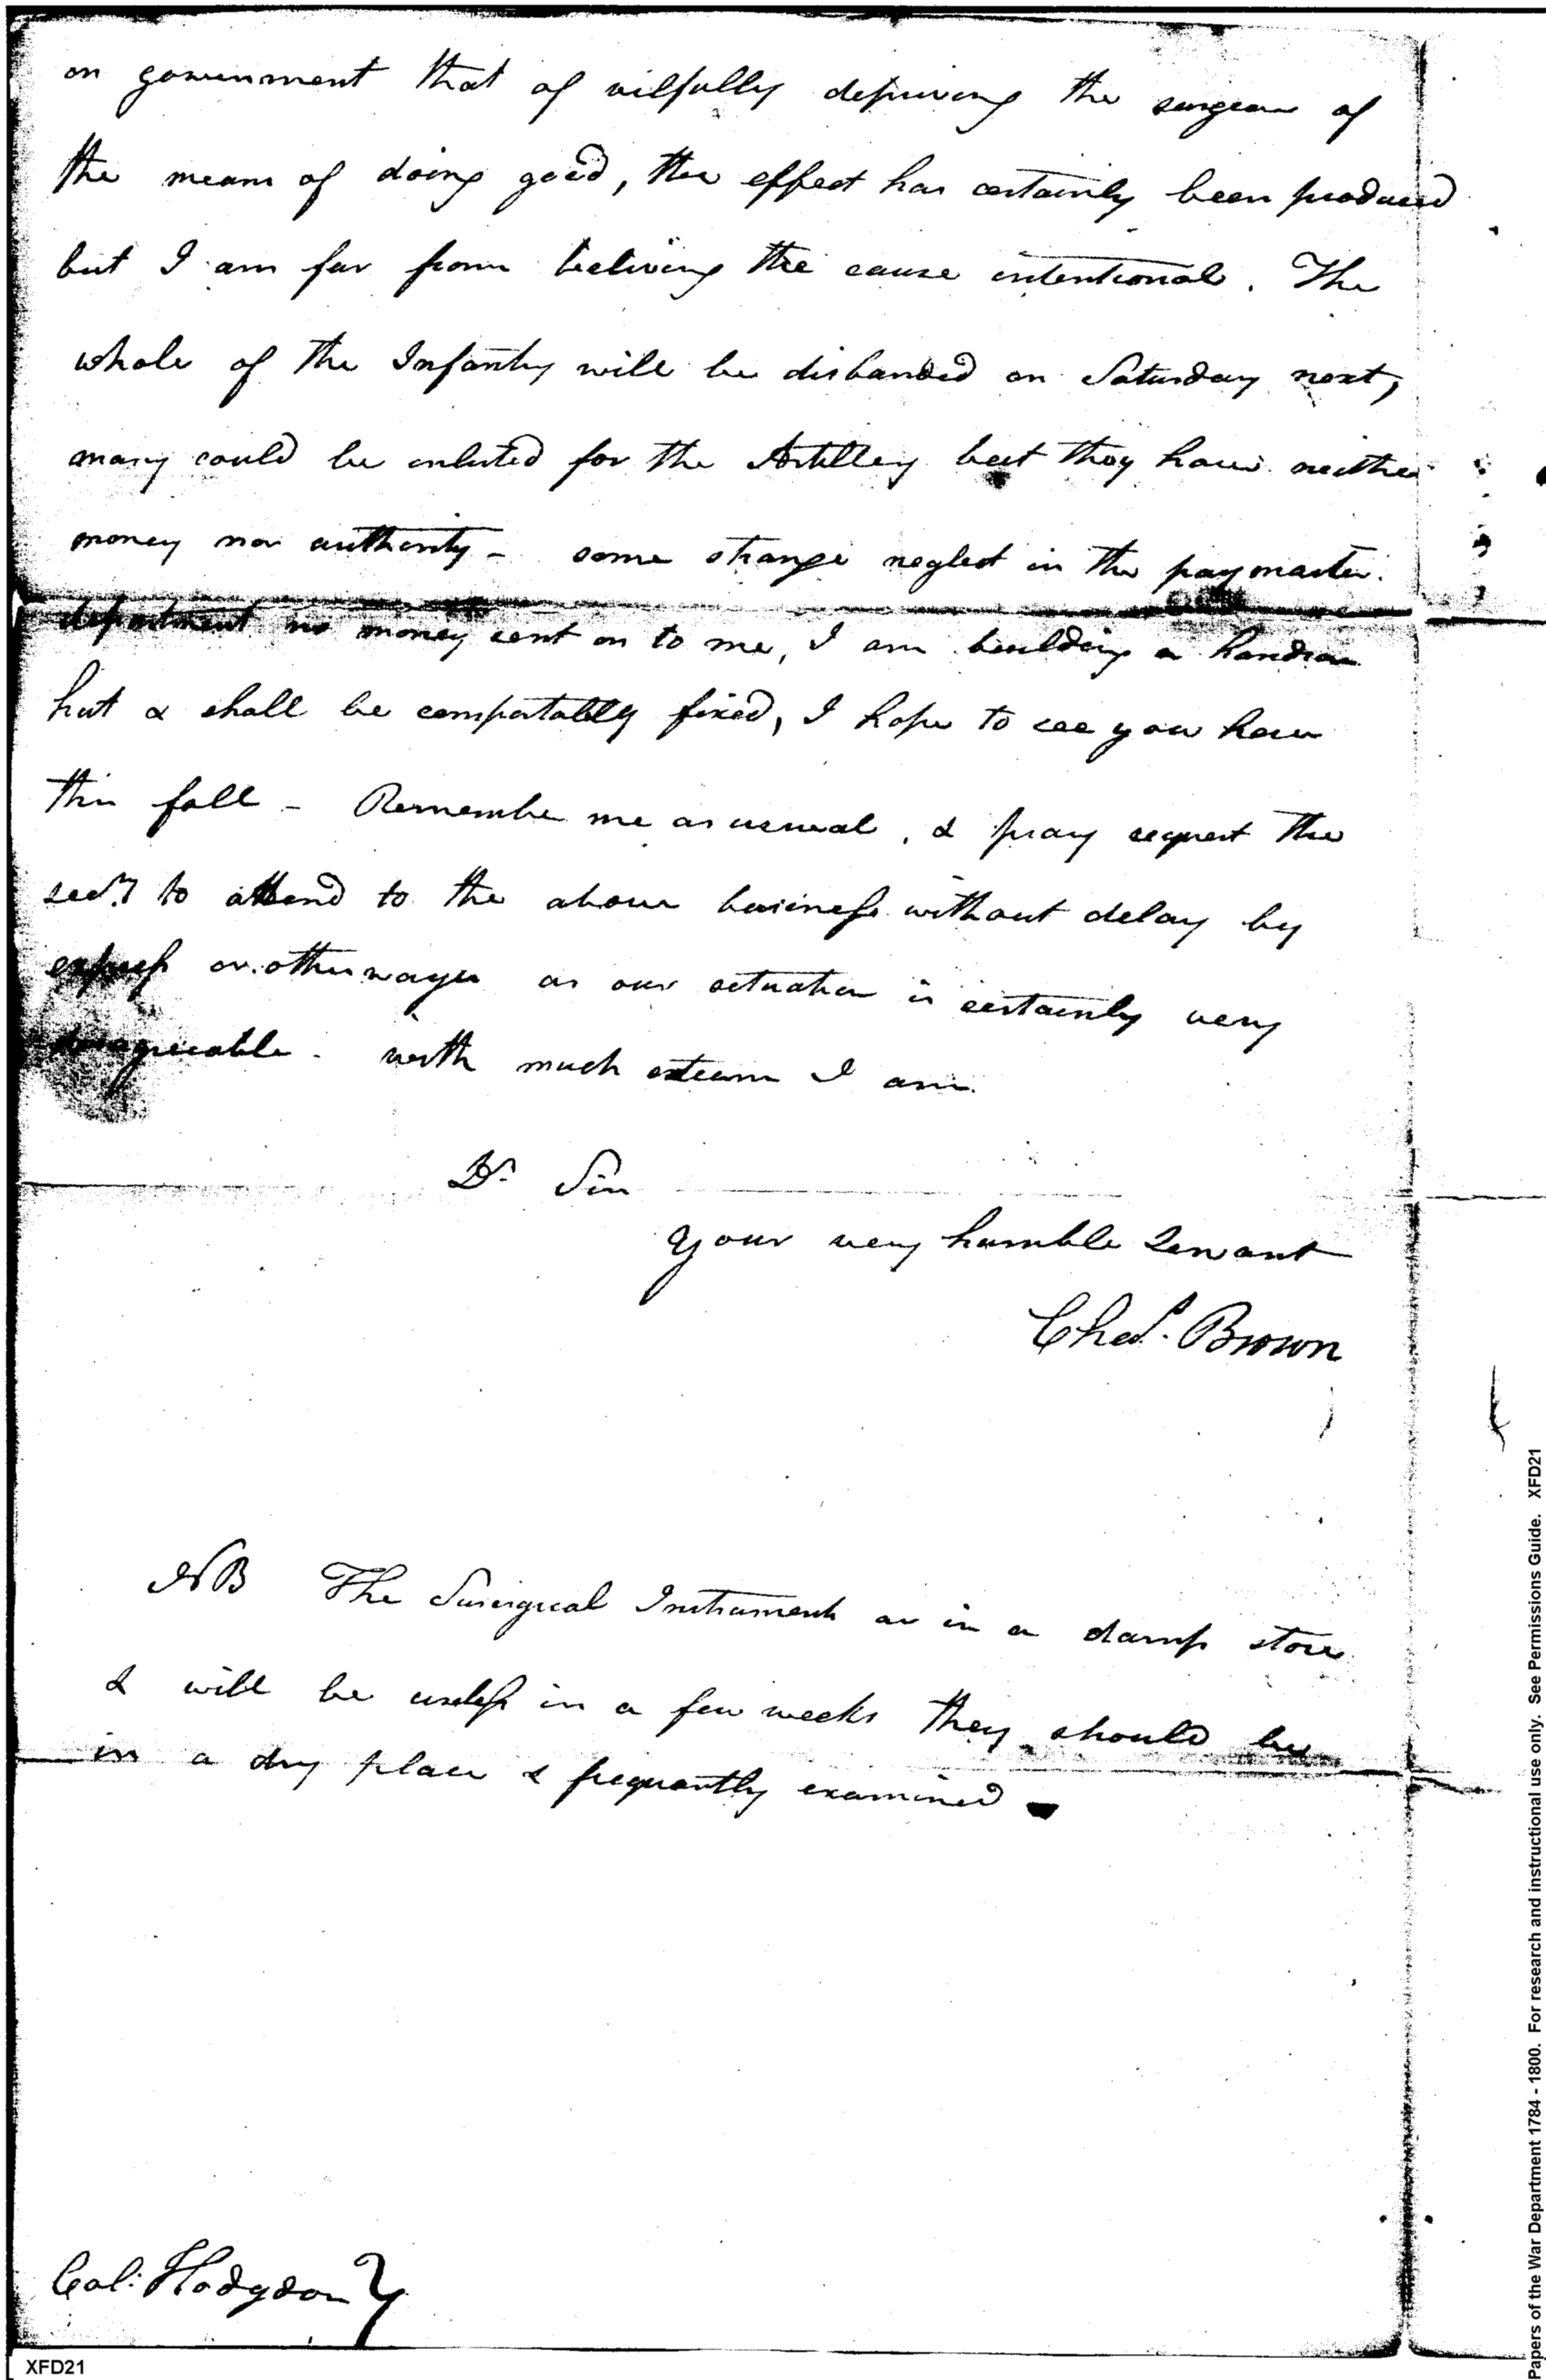 on government that of wilfully depriving the surgeon of
the means of doing good, the effect has certainly been produced
but I am far from beliving the cause intentional. The
whole of the Infantry will be disbanded on Saturday next,
many could be enlisted for the Artillery but they have neither
money nor authority - some strange neglect in the paymaster.
department no money sent on to me, I am building a handsom
hut & shall be comfortably fixed, I hope to see you here
this fall - Remember me as usual, & pray request the
secy. to attend to the above business without delay by
express or otherways as our situation is certainly very
disagreeable. with much esteem I am
Dr. Sir
your very humble Servant
Chas. Brown
NB The Surigical Instruments are in a damp store
& will be useless in a few weeks they should be
in a dry place & frequently examined
Col: Hodgdon
XFD21
Papers of the War Department 1784 - 1800. For research and instructional use only. See Permissions Guide. XFD21